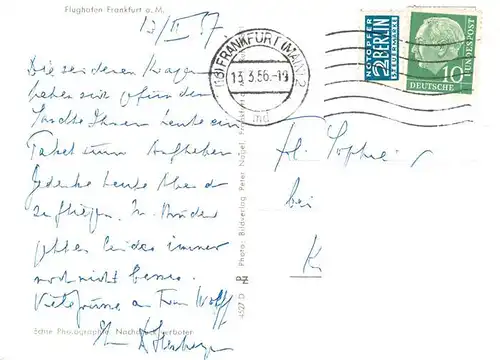 Flughafen Frankfurt a. M.
13/III 57
Die seidenen Kragen
haben sich gefunden
Ihnen heute ein
Paket zum Aufheben
Gedenke heute Abend
zu fliegen. M. Bruder
geht es leider immer
noch nicht besser.
Viele Grüsse an Frau Wolff
Ihr
Echte Photographie Nachdruck verboten
4527 D
Photo: Bildverlag Peter Nagel, Frankfurt
(16) FRANKFURT (MAIN) 2
13.3.56.-19
md
NOTOPFER
2 BERLIN
STEUERMARKE
DEUTSCHE BUNDESPOST
10
Frl. Sophie
bei
K